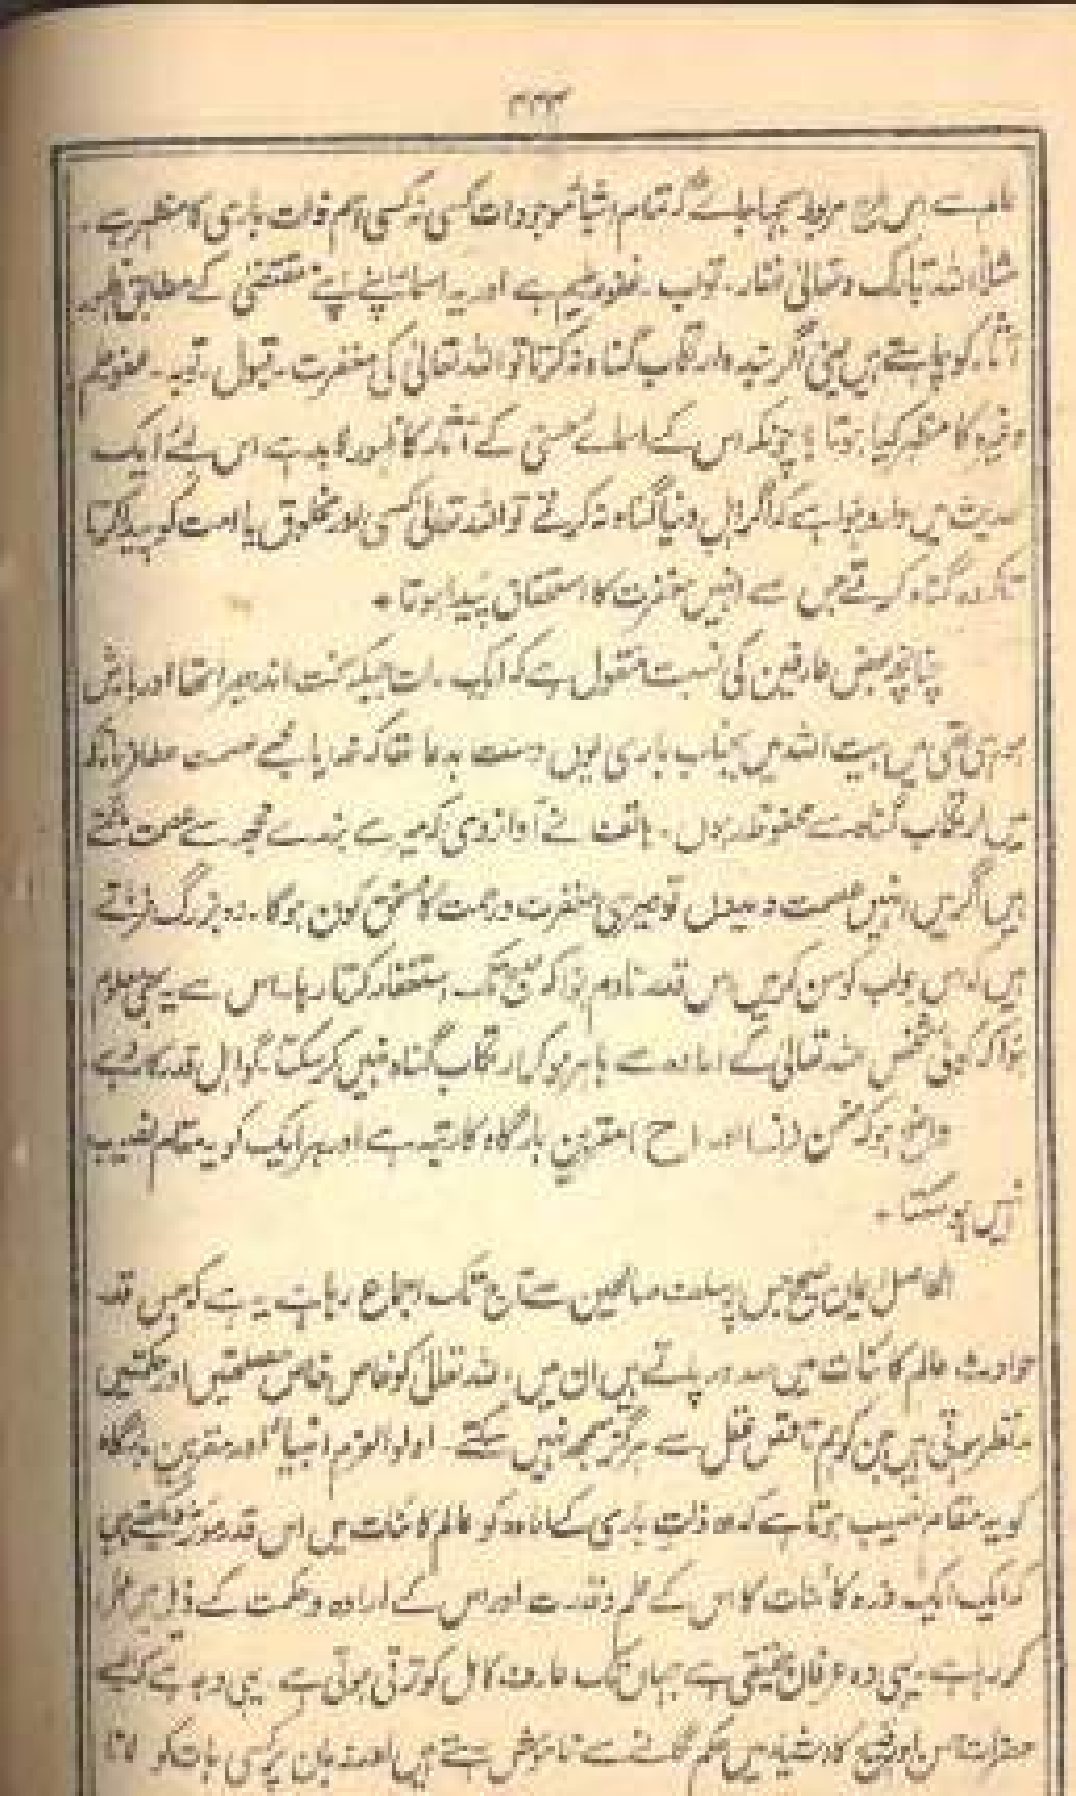 ۳۳۳
سے اس مربوط سمجھا جائے کہ تمام اشیأ موجودات کسی نہ کسی اسم ذات باری کا مظہر ہے۔
مثلاً اللہ تبارک وتعالیٰ غفار۔ تواب۔ غفور حلیم ہے اور یہ اسما اپنے اپنے مقتضیٰ کے مطابق ظہور
آثار کو چاہتے ہیں یعنی اگر بندہ ارتکاب گناہ نہ کرتا تو اللہ تعالیٰ کی مغفرت۔ قبول۔ توبہ۔ عفو حلم
وغیرہ کا مظہر کیا ہوتا؟ چونکہ اس کے اسمائے حسنیٰ کے آثار کا ظہور لابد ہے اس لئے ایک
حدیث میں وارد ہوا ہے کہ اگر اہل دنیا گناہ نہ کرتے تو اللہ تعالیٰ کسی اور مخلوق یا امت کو پیدا کرتا
تاکہ وہ گناہ کرتے جس سے انہیں مغفرت کا استحقاق پیدا ہوتا *
چنانچہ بعض عارفین کی نسبت منقول ہے کہ ایک رات جبکہ سخت اندھیرا تھا اور بارش
ہو رہی تھی میں بیت اللہ میں بجناب باری یوں دست بدعا تھا کہ خدایا مجھے عصمت عطا فرما تاکہ
میں ارتکاب گناہ سے محفوظ رہوں۔ ہاتف نے آواز دی کہ میرے بندے مجھ سے عصمت مانگتے
ہیں اگر میں انہیں عصمت دیدوں تو میری مغفرت و رحمت کا مستحق کون ہوگا۔ وہ بزرگ فرماتے
ہیں کہ اس جواب کو سن کر میں اس قدر نادم ہوا کہ صبح تک استغفار کرتا رہا۔ اس سے یہ بھی معلوم
ہوا کہ کوئی شخص اللہ تعالیٰ کے ارادہ سے باہر ہو کر ارتکاب گناہ نہیں کر سکتا۔
واضح ہو کہ اور (ح) مقربین بارگاہ کا رتبہ ہے اور ہر ایک کو یہ مقام نصیب
نہیں ہو سکتا *
الحاصل ایمان صحیح جس پر سلف صالحین سے آج تک اجماع رہا ہے یہ ہے کہ جس قدر
حوادث عالم کائنات میں صدور پاتے ہیں ان میں اللہ تعالیٰ کو خاص خاص مصلحتیں اور حکمتیں
مدنظر ہوتی ہیں جن کو ہم ناقص عقل سے ہرگز سمجھ نہیں سکتے۔ اولوالعزم انبیاؑ اور مقربین بارگاہ
کو یہ مقام نصیب ہوتا ہے کہ وہ ذات باری کے ارادہ کو عالم کائنات میں اس قدر مؤثر دیکھتے ہیں
کہ ایک ایک ذرہ کائنات کا اس کے علم و قدرت اور اس کے ارادہ و حکمت کے
کر رہا ہے۔ یہی وہ عرفان حقیقی ہے جہاں تک عارف کامل کو ترقی ہوتی ہے۔ یہی وجہ ہے کہ ایسے
حضرات میں حکم لگانے سے خاموش رہتے ہیں اور زبان پر کسی بات کو لانا